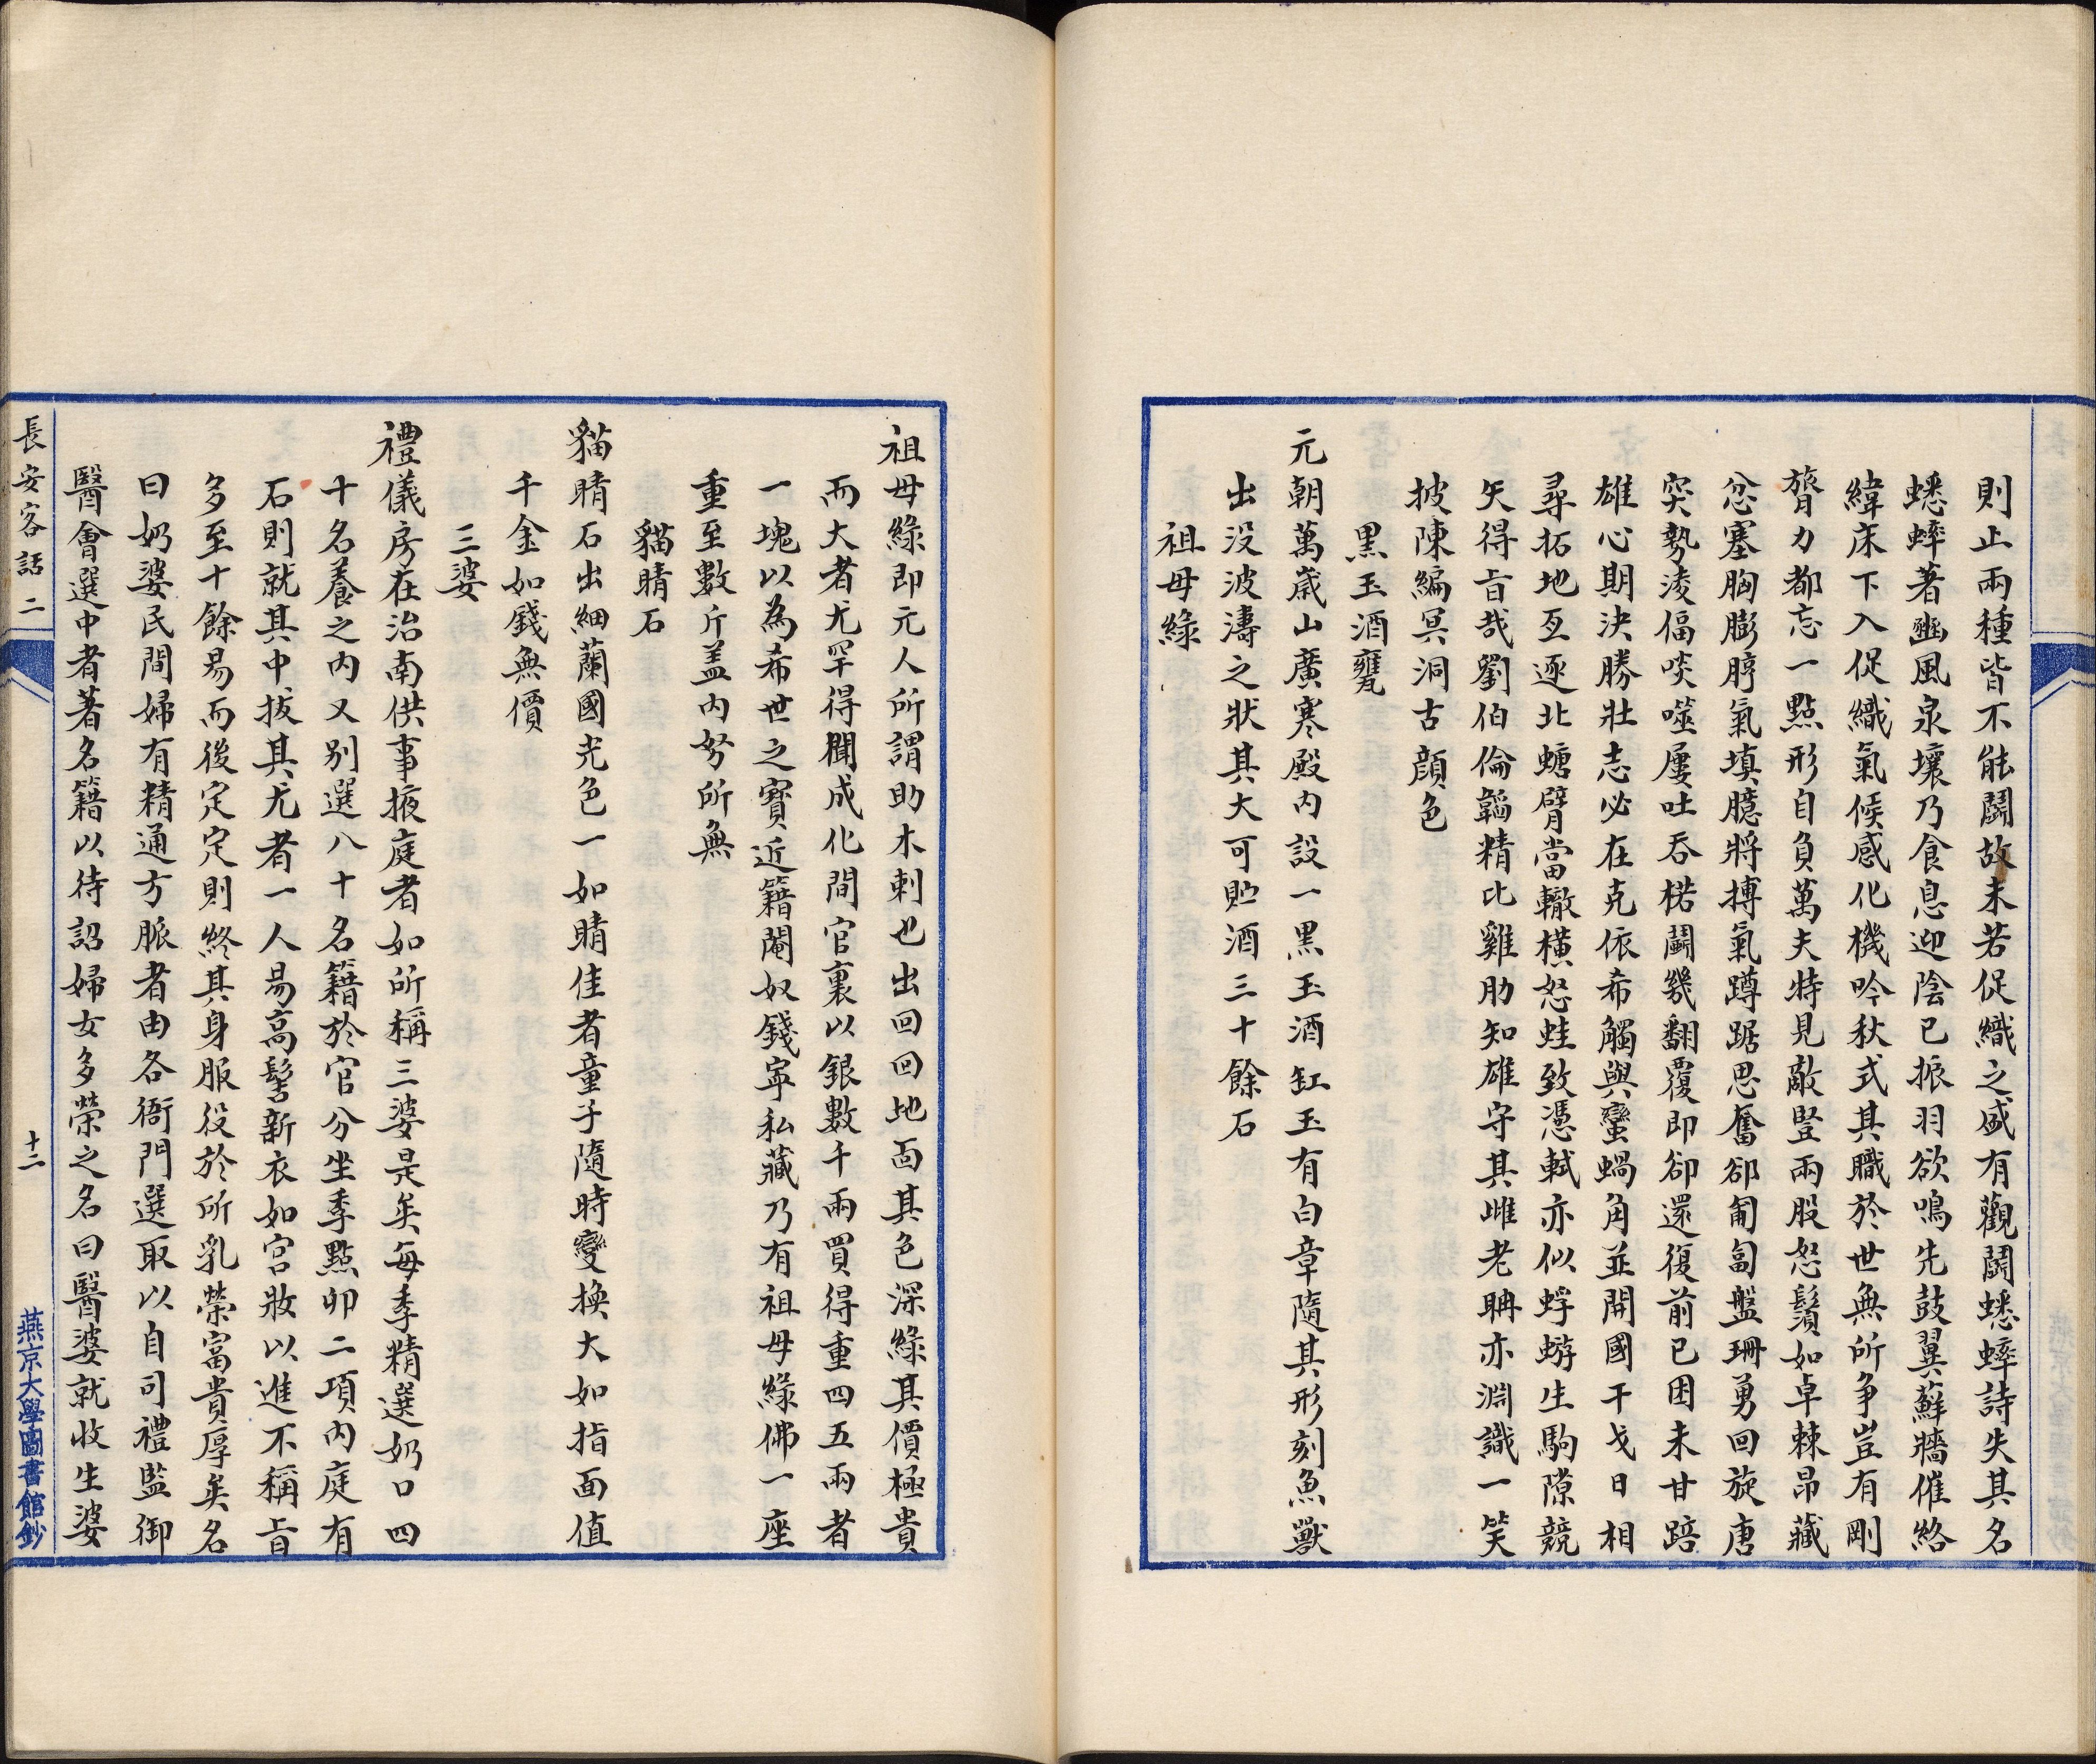 則止兩種皆不能鬭故未若促織之盛有觀鬭蟋蟀詩失其名
蟋蟀著豳風泉壤乃食息迎陰已振羽欲鳴先鼓翼蘚牆催絡
緯床下入促織氣候感化機吟秋式其職於世無所爭豈有剛
膂力都忘一點形自負萬夫特見敵豎兩股怒鬚如卓棘昂藏
忿塞胸膨脝氣填臆將搏氣蹲踞思奮郤匍匐盤珊勇回旋唐
突勢淩偪啖噬屢吐吞桰鬭幾翻覆即卻還復前已困未甘踣
雄心期決勝壯志必在克依希觸與蠻蝸角並開國干戈日相
尋拓地互逐北螗臂當轍橫怒蛙致憑軾亦似蜉蝣生駒隙競
矢得旨哉劉伯倫韜精比雞肋知雄守其雌老聃亦淵識一笑
披陳編冥洞古顏色
黑玉酒甕
元朝萬歲山廣寒殿內設一黑玉酒缸玉有白章隨其形刻魚獸
出沒波濤之狀其大可貯酒三十餘石
祖母綠
祖母綠即元人所謂助木剌也出回回地面其色深綠其價極貴
而大者尤罕得聞成化間官裏以銀數千兩買得重四五兩者
一塊以為希世之寶近籍閹奴錢寧私藏乃有祖母綠佛一座
重至數斤盖內帑所無
貓睛石
貓睛石出細蘭國光色一如睛佳者童子隨時變換大如指面值
千金如錢無價
三婆
禮儀房在治南供事掖庭者如所稱三婆是矣每季精選奶口四
十名養之內又別選八十名籍於官分坐季點卯二項內庭有
石則就其中拔其尤者一人昜高髻新衣如宮妝以進不稱旨
多至十餘易而後定定則終其身服役於所乳榮富貴厚矣名
曰奶婆民間婦有精通方脈者由各衙門選取以自司禮監御
醫會選中者著名籍以待詔婦女多榮之名曰醫婆就收生婆
長安客話 二
十二
燕京大學圖書館鈔